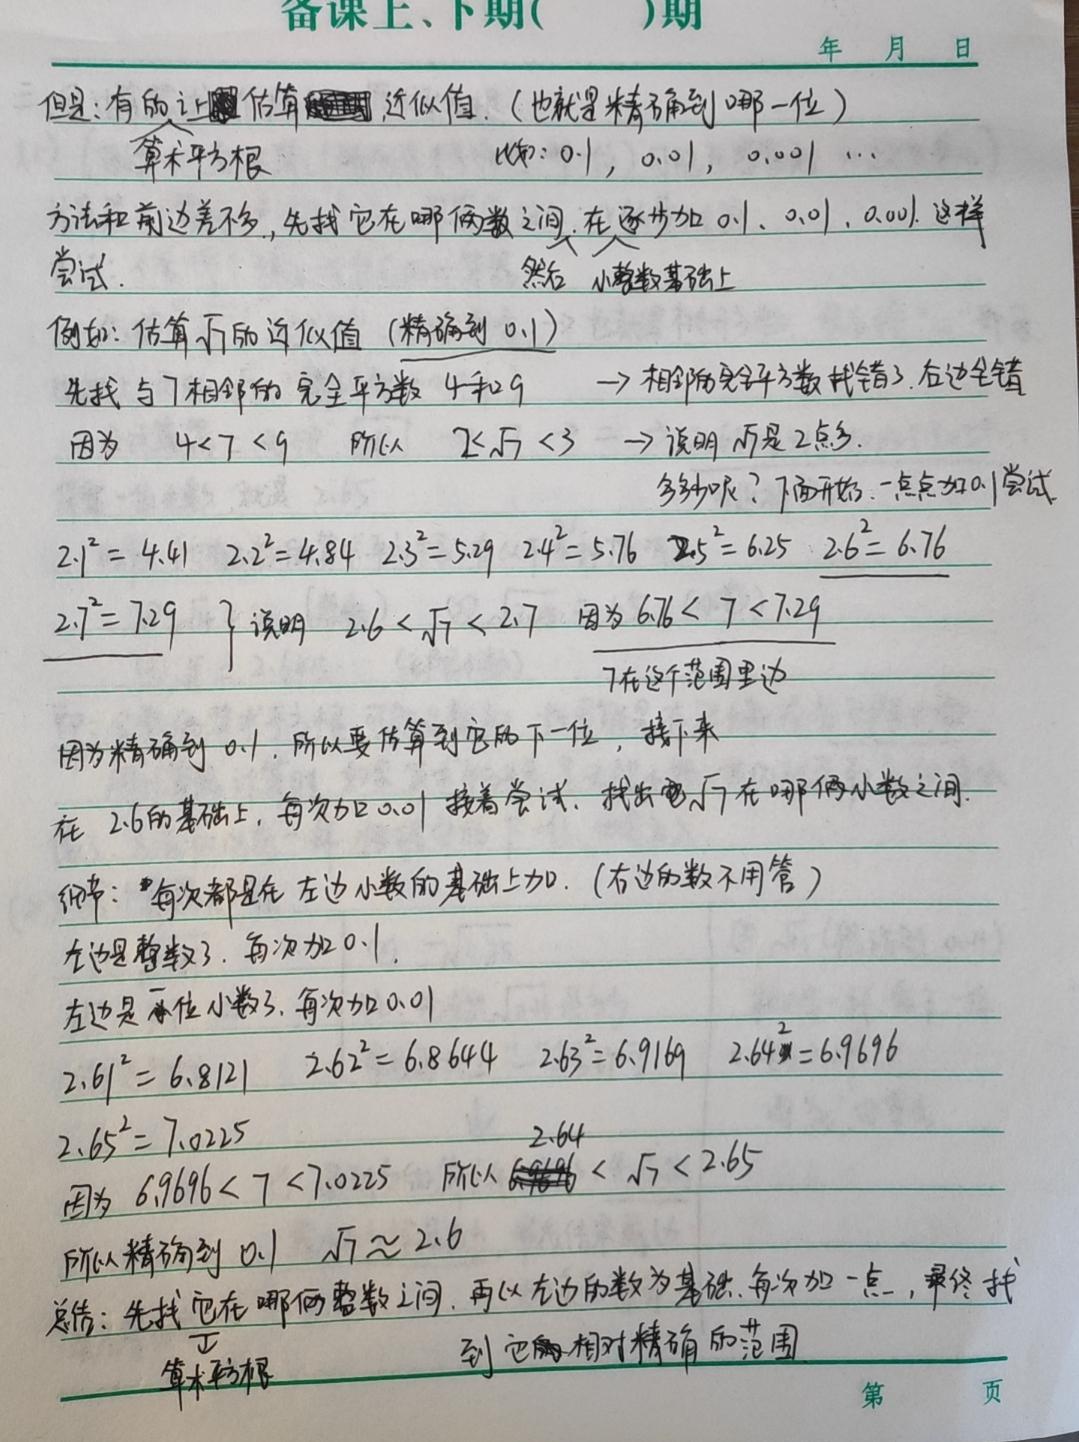 备课上、下期(    )期
年 月 日
但是:有的让估算近似值.(也就是精确到哪一位)
算术平方根
比如:0.1, 0.01, 0.001 …
方法和前边差不多,先找它在哪俩数之间.在逐步加 0.1、0.01、0.001.这样
然后 小整数基础上
尝试.
例如:估算√7的近似值(精确到0.1)
先找与7相邻的完全平方数 4和9 → 相邻的完全平方数找错了.右边全错
因为 4<7<9 所以 2<√7<3 → 说明√7是2点多.
多多少呢?下面开始.一点点加0.1尝试.
2.1²=4.41 2.2²=4.84 2.3²=5.29 2.4²=5.76 2.5²=6.25 2.6²=6.76
2.7²=7.29 } 说明 2.6<√7<2.7 因为 6.76<7<7.29
7在这个范围里边
因为精确到0.1.所以要估算到它的下一位,接下来
在2.6的基础上,每次加0.01接着尝试.找出√7在哪俩小数之间.
细节:每次都是在左边小数的基础上加.(右边的数不用管)
左边是整数了.每次加0.1.
左边是一位小数了.每次加0.01
2.61²=6.8121 2.62²=6.8644 2.63²=6.9169 2.64²=6.9696
2.65²=7.0225
因为 6.9696<7<7.0225 所以 2.64<√7<2.65
所以精确到0.1 √7≈2.6
总结:先找它在哪俩整数之间.再以左边的数为基础.每次加一点,最终找
算术平方根
到它相对精确的范围
第 页